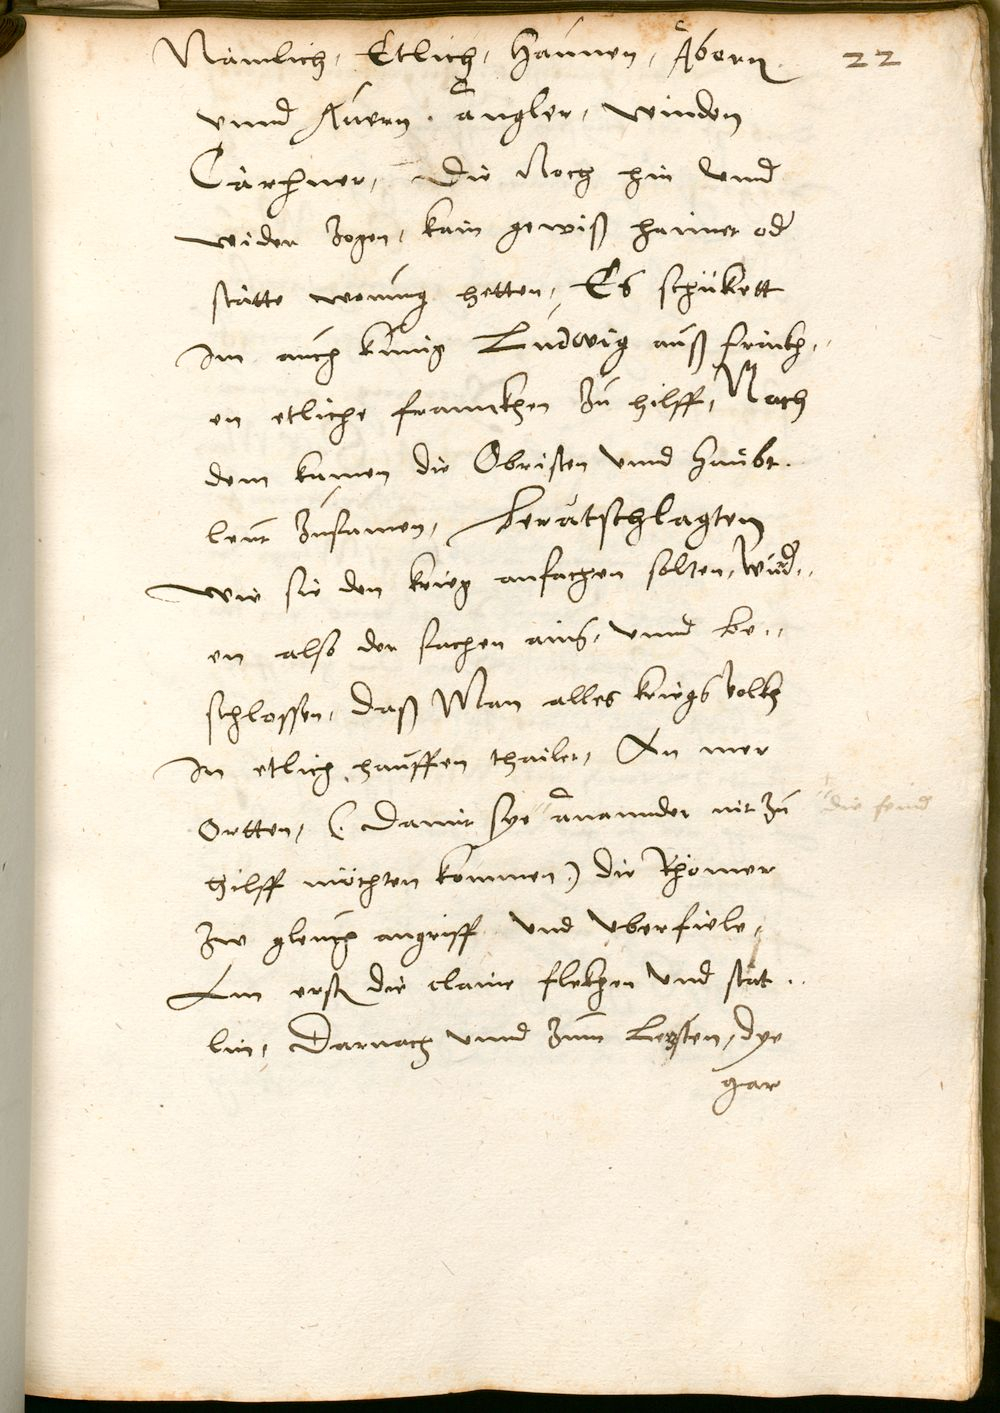 Nämlich, Etlich, Haunen, Äbern 22
vnnd Auern. ängler, winden
Cärhner, die Noch hin vnnd
wider zogen, kain gewiß haimet od
stätte wonung hetten, Es schükett
im auch künig Ludwig auß fränkh,,
en etliche frannkhen zu hilff, Nach
dem kamen die Obristen vnnd Haubt.
leut zusamen, berätschlagten
wie sie den krieg anfachen solten, wurd,,
en also der sachen ains, vnnd be,,
schlossen, daß Man alles kriegs Volkh
in etlich hauffen thailet, An mer
Ortten, (damit sye ananunder nit zu die feind
hilff möchten kommen) die Rhömer
zw gleuch angriff vnd vberfiele,
Am erst die claine flekhen vnd stät..
lin, Darnach vnnd zum Letzsten, dye
gar